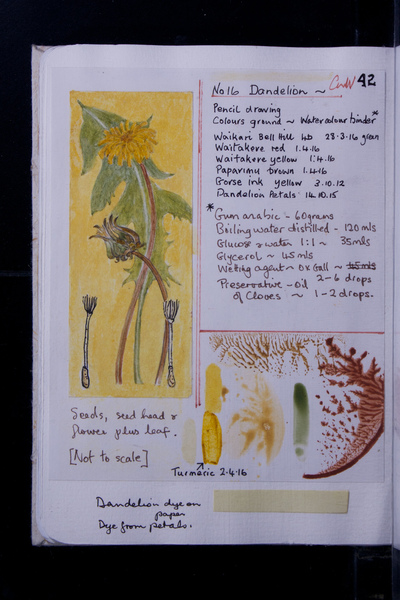 No16 Dandelion ~
42
Pencil drawing
Colours ground ~ Watercolour binder*
Waikari Bell Hill 28·3·16
Waitakere red 1.4.16
Waitakere yellow 1.4.16
Paparimu brown 1.4.16
Gorse ink yellow 3.10.12
Dandelion Petals 14.10.15
* Gum arabic - 60grams
Boiling water distilled - 120mls
Glucose & water 1:1 ~ 35mls
Glycerol ~ 45mls
Wetting agent ~ Ox Gall ~ 45mls
2-6 drops
Preservative - Oil
of Cloves ~ 1-2 drops.
Seeds, seed head &
flower plus leaf.
[Not to scale]
Turmeric 2·4·16
Dandelion dye on
paper
Dye from petals.